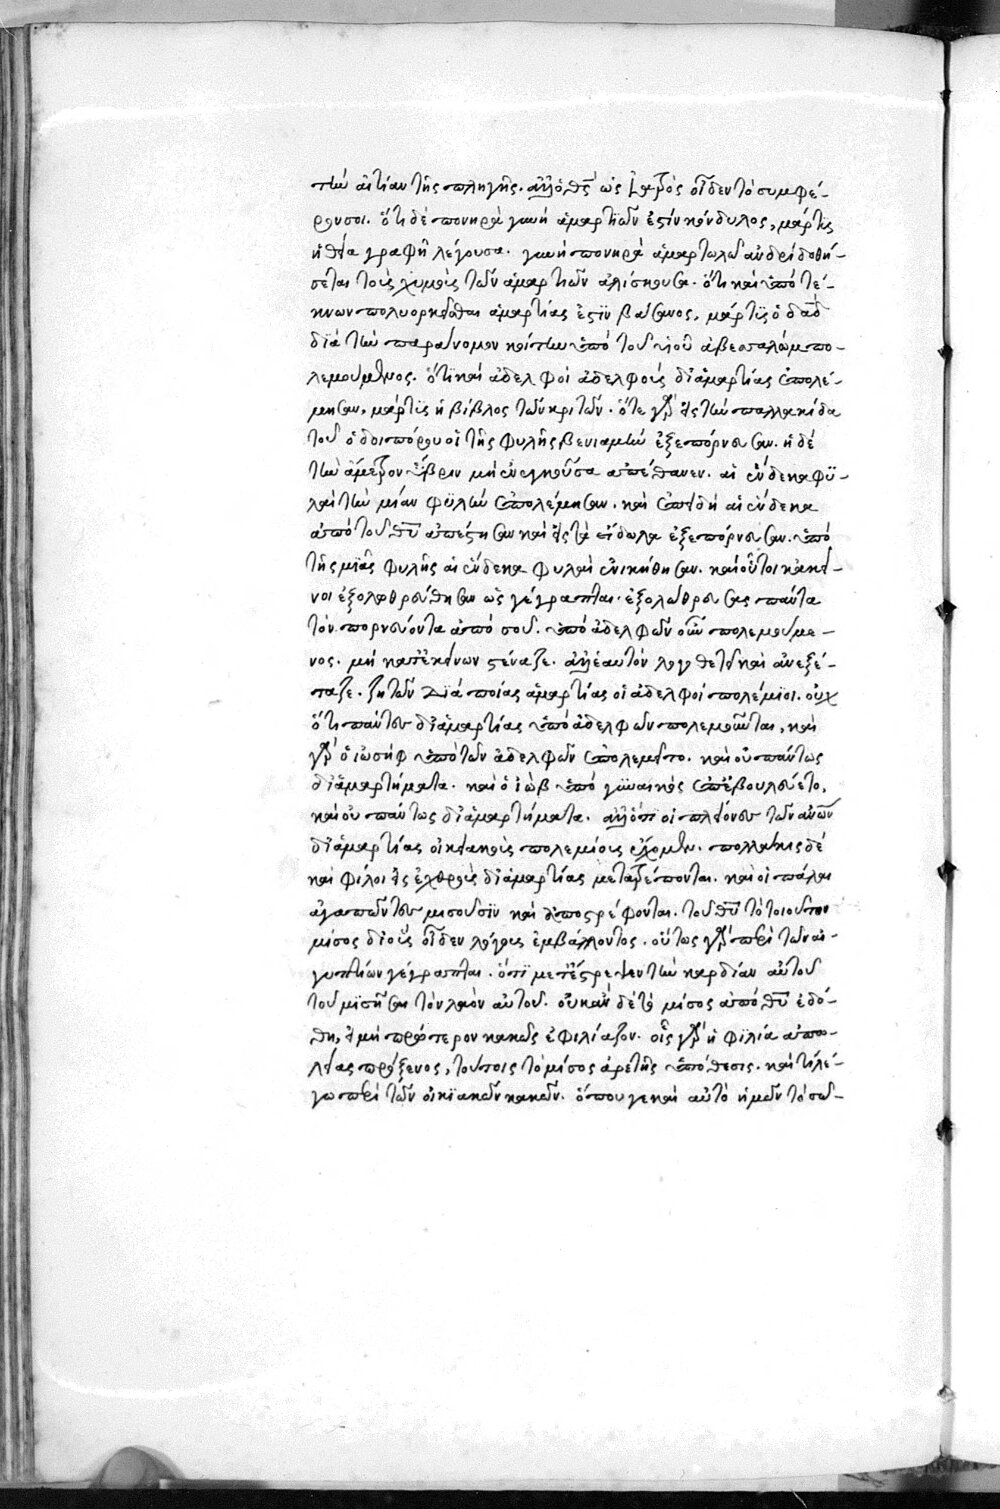 τὴν αἰτίαν τῆς πληγῆς. ἀλλ' ὁ θ̅ς̅ ὡς ἰατρὸς οἶδεν τὸ συμφέ-
ρον σοι. ὅτι δὲ πονηρὰ γυνὴ ἁμαρτιῶν ἐστὶν κόνδυλος, μάρτυς
ἡ θεία γραφὴ λέγουσα. γυνὴ πονηρὰ ἁμαρτωλῷ ἀνδρὶ δοθή-
σεται τοὺς χυμοὺς τῶν ἁμαρτιῶν ἀλίσκουσα. ὅτι καὶ ὑπὸ τέ-
κνων πολιορκεῖσθαι ἁμαρτίας ἐστὶν βάσανος, μάρτυς ὁ δα̅δ̅
διὰ τὴν παράνομον κοίτην ὑπὸ τοῦ υἱοῦ ἀβεσαλὼμ πο-
λεμούμενος. ὅτι καὶ ἀδελφοὶ ἀδελφοὺς δι' ἁμαρτίας ἐπολέ-
μησαν, μάρτυς ἡ βίβλος τῶν κριτῶν. ὅτε γὰρ εἰς τὴν παλλακίδα
τοῦ ὁδοιπόρου οἱ τῆς φυλῆς βενιαμὶν ἐξεπόρνευσαν. ἡ δὲ
τὴν ἄμετρον ὕβριν μὴ ἐνεγκοῦσα ἀπέθανεν. αἱ ἕνδεκα φυ-
λαὶ τὴν μίαν φυλὴν ἐπολέμησαν. καὶ ἐπειδὴ αἱ ἕνδεκα
ἀπὸ τοῦ θ̅υ̅ ἀπέστησαν καὶ εἰς τὰ εἴδωλα ἐξεπόρνευσαν. ὑπὸ
τῆς μιᾶς φυλῆς αἱ ἕνδεκα φυλαὶ ἐνικήθησαν. καὶ οὗτοι κἀκεῖ-
νοι ἐξολοθρεύθησαν ὡς γέγραπται. ἐξολώθρευσας πάντα
τὸν πορνεύοντα ἀπὸ σοῦ. ὑπὸ ἀδελφῶν οὖν πολεμούμε-
νος. μὴ κατ' ἐκείνων στέναζε. ἀλλ' ἑαυτὸν λογοθέτει καὶ ἀνεξέ-
ταζε. ζητῶν διὰ ποίας ἁμαρτίας οἱ ἀδελφοὶ πολέμιοι. οὐχ
ὅτι πάντες δι' ἁμαρτίας ὑπὸ ἀδελφῶν πολεμοῦνται, καὶ
γὰρ ὁ ἰωσὴφ ὑπὸ τῶν ἀδελφῶν ἐπολεμεῖτο. καὶ οὐ πάντως
δι' ἁμαρτήματα. καὶ ὁ ἰὼβ ὑπὸ γυναικὸς ἐπεβουλεύετο,
καὶ οὐ πάντως δι' ἁμαρτήματα. ἀλλ' ὅτι οἱ πλείονες τῶν ἀν̅ω̅ν̅
δι' ἁμαρτίας οἰκειακοὺς πολεμίους ἔχομεν. πολλάκις δὲ
καὶ φίλοι εἰς ἐχθροὺς δι' ἁμαρτίας μετατρέπονται. καὶ οἱ πάλαι
ἀγαπῶντες μισοῦσιν καὶ ἀποστρέφονται. τοῦ θ̅υ̅ τὸ τοιοῦτον
μῖσος δι' οὓς οἶδεν λόγους ἐμβάλλοντος. οὕτως γὰρ περὶ τῶν αἰ-
γυπτίων γέγραπται. ὅτι μετέστρεψεν τὴν καρδίαν αὐτοῦ
τοῦ μισῆσαι τὸν λαὸν αὐτοῦ. οὐκ ἂν δὲ τὸ μῖσος ἀπὸ θ̅υ̅ ἐδό-
θη, εἰ μὴ πρότερον κακῶς ἐφιλίαζον. οἷς γὰρ ἡ φιλία ἀπω-
λείας πρόξενος, τούτοις τὸ μῖσος ἀρετῆς ὑπόθεσις. καὶ τί λέ-
γω περὶ τῶν οἰκιακῶν κακῶν. ὅπου γε καὶ αὐτὸ ἡμῶν τὸ σῶ-